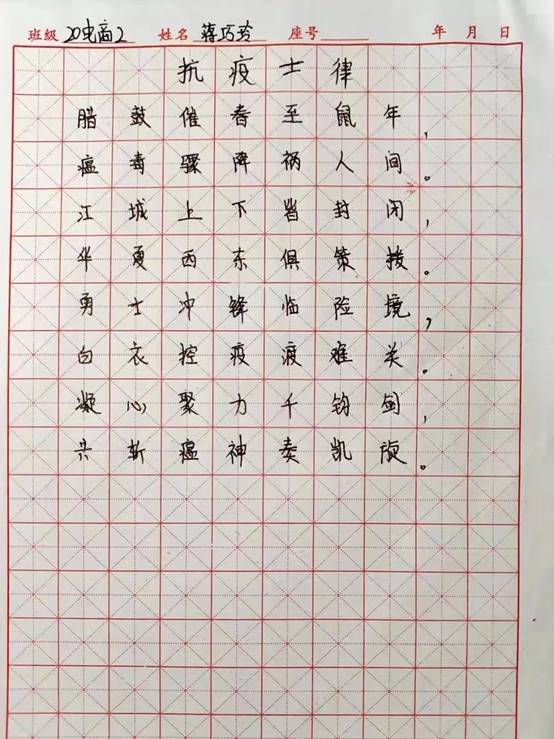 班级 20电商2 姓名 蒋巧玲 座号 年 月 日
抗疫士律
腊鼓催春至鼠年,
瘟毒骤降祸人间。
江城上下皆封闭,
华夏西东俱策援。
勇士冲锋临险境,
白衣控疫渡难关。
凝心聚力千钧剑,
共斩瘟神奏凯旋。